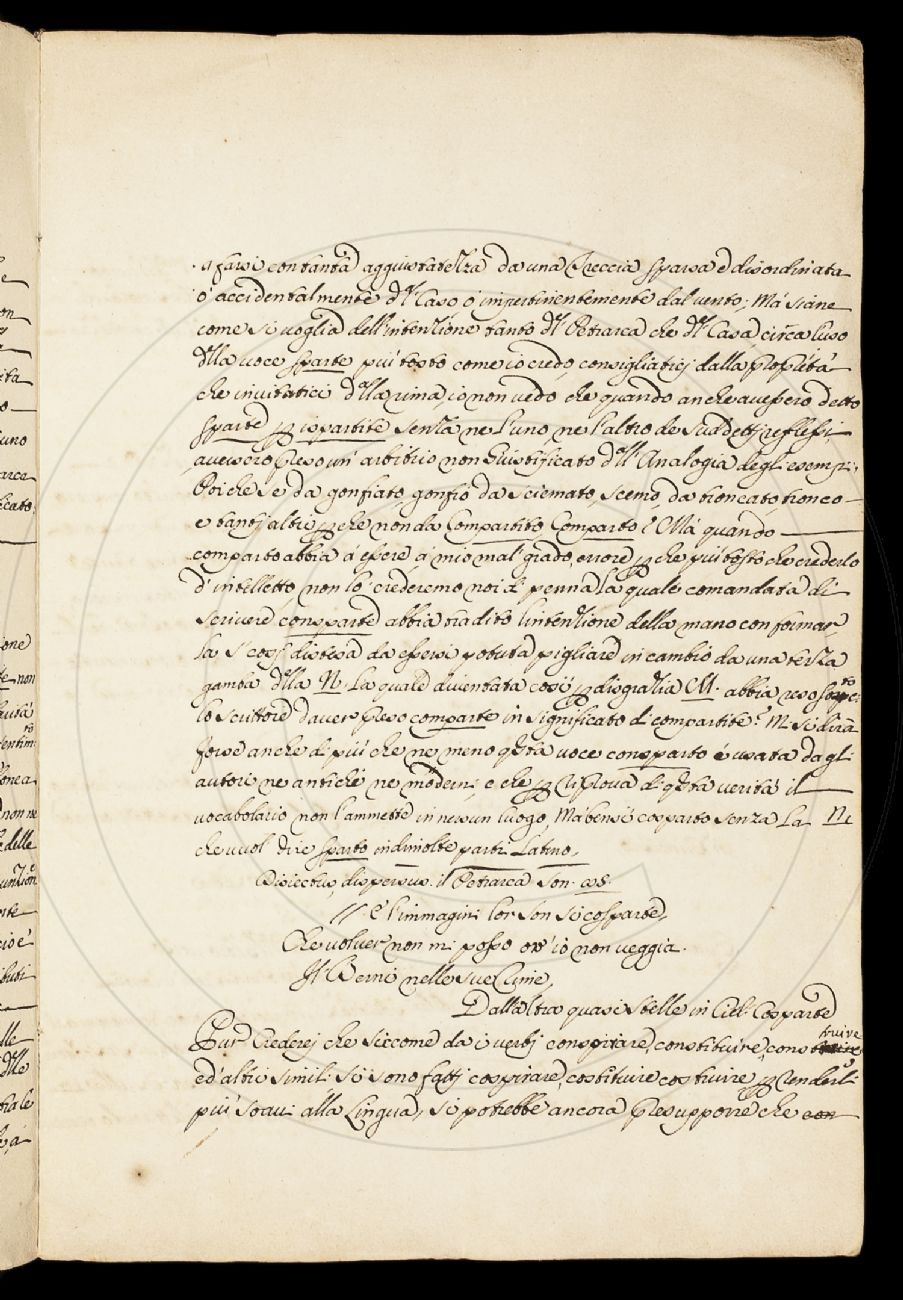 a farsi con tantà aggiustatezza da una Treccia sparsa è disordinata
ò accidentalmente d'll Caso ò impertinentemente dal vento; Mà siane
come si voglia dell'intenzione tanto d'll Petrarca che d'll Casa, circa l'uso
d'lla voce sparte più tosto come io credo, consigliatici dalla propietà
che invitatici d'lla rima io non vedo che quando anche avessero detto
sparte p ispartite senza ne l'uno ne l'altro de sud.detti reflessi
avessero preso un' arbitrio non Giustificato d'll' Analogia degli esempi.
Poiche se da gonfiato, gonfio da sciemato, scemo, da troncato, tronco
e tantj altri p che non da Compartito Comparto? Mà quando
comparto abbia à essere, à mio mal' grado, errore p che più tosto che crederlo
d'intelletto, non lo crederemo noi di penna la quale comandata di
scrivere consparte abbia tradito l'intenzione della mano con formar
la S così distesa da essersi potuta pigliare in cambio da una terza
gamba d'lla N. La quale diventata così p disgrazia M. abbia reso sospetto
lo scrittore d'aver preso comparte in significato di compartite? Mi si dirà
forse anche di più che ne meno q'sta voce consparto è usata dagli
autori ne antichi ne moderni, e che p riprova di q'sta verità il
vocabolario non l'ammette in nessun luogo, Mà bensì cosparto senza la N.
che vuol dire sparto in di molte parti Latino,
Disiectus, dispersus. il Petrarca Son. 108.
// E l'immagini lor son sì cosparte,
Che volver non mi posso ov' io non veggia.
Il Berni nelle sue Rime,
Dall'altra quasi stelle in Ciel Cosparte
Pur Crederej che siccome da i verbj conspirare, constituire, construire
ed'altri simili si sono fattj cospirare, costituire costruire p renderli
più soavi alla Lingua, si potrebbe ancora presupporre che con